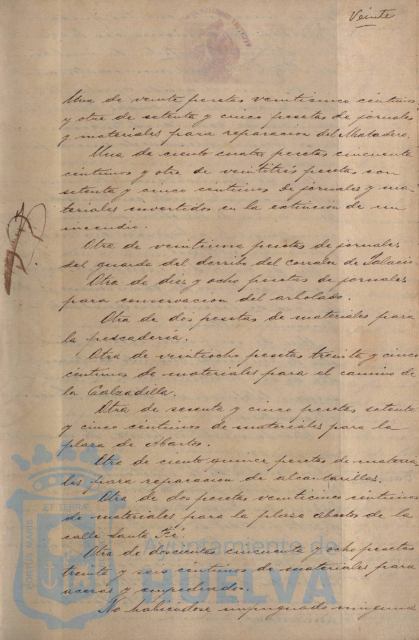 Veinte
Una de veinte pesetas veinticinco céntimos
y otra de setenta y cinco pesetas de jornales
y materiales para reparacion del Matadero.
Una de ciento cuatro pesetas cincuenta
centimos y otra de veintitres pesetas con
setenta y cinco centimos de jornales y ma-
teriales invertidos en la extincion de un
incendio.
Otra de veintiuna pesetas de jornales
del guarda del derribo del Corralon de Palacio
Otra de diez y ocho pesetas de jornales
para conservacion del arbolado.
Otra de dos pesetas de materiales para
la pescadería.
Otra de veintiocho pesetas treinta y cinco
centimos de materiales para el camino de
la Calzadilla.
Otra de sesenta y cinco pesetas setenta
y cinco centimos de materiales para la
plaza de Abastos.
Otra de ciento quince pesetas de materia
les para reparacion de alcantarillas.
Otra de dos pesetas veinticinco centimos
de materiales para la plaza Abastos de la
calle Santa Fé.
Otra de doscientas cincuenta y ocho pesetas
treinta y seis centimos de materiales para
aceras y empedrados.
No habiendose impugnado ninguna
Ayuntamiento de
HUELVA